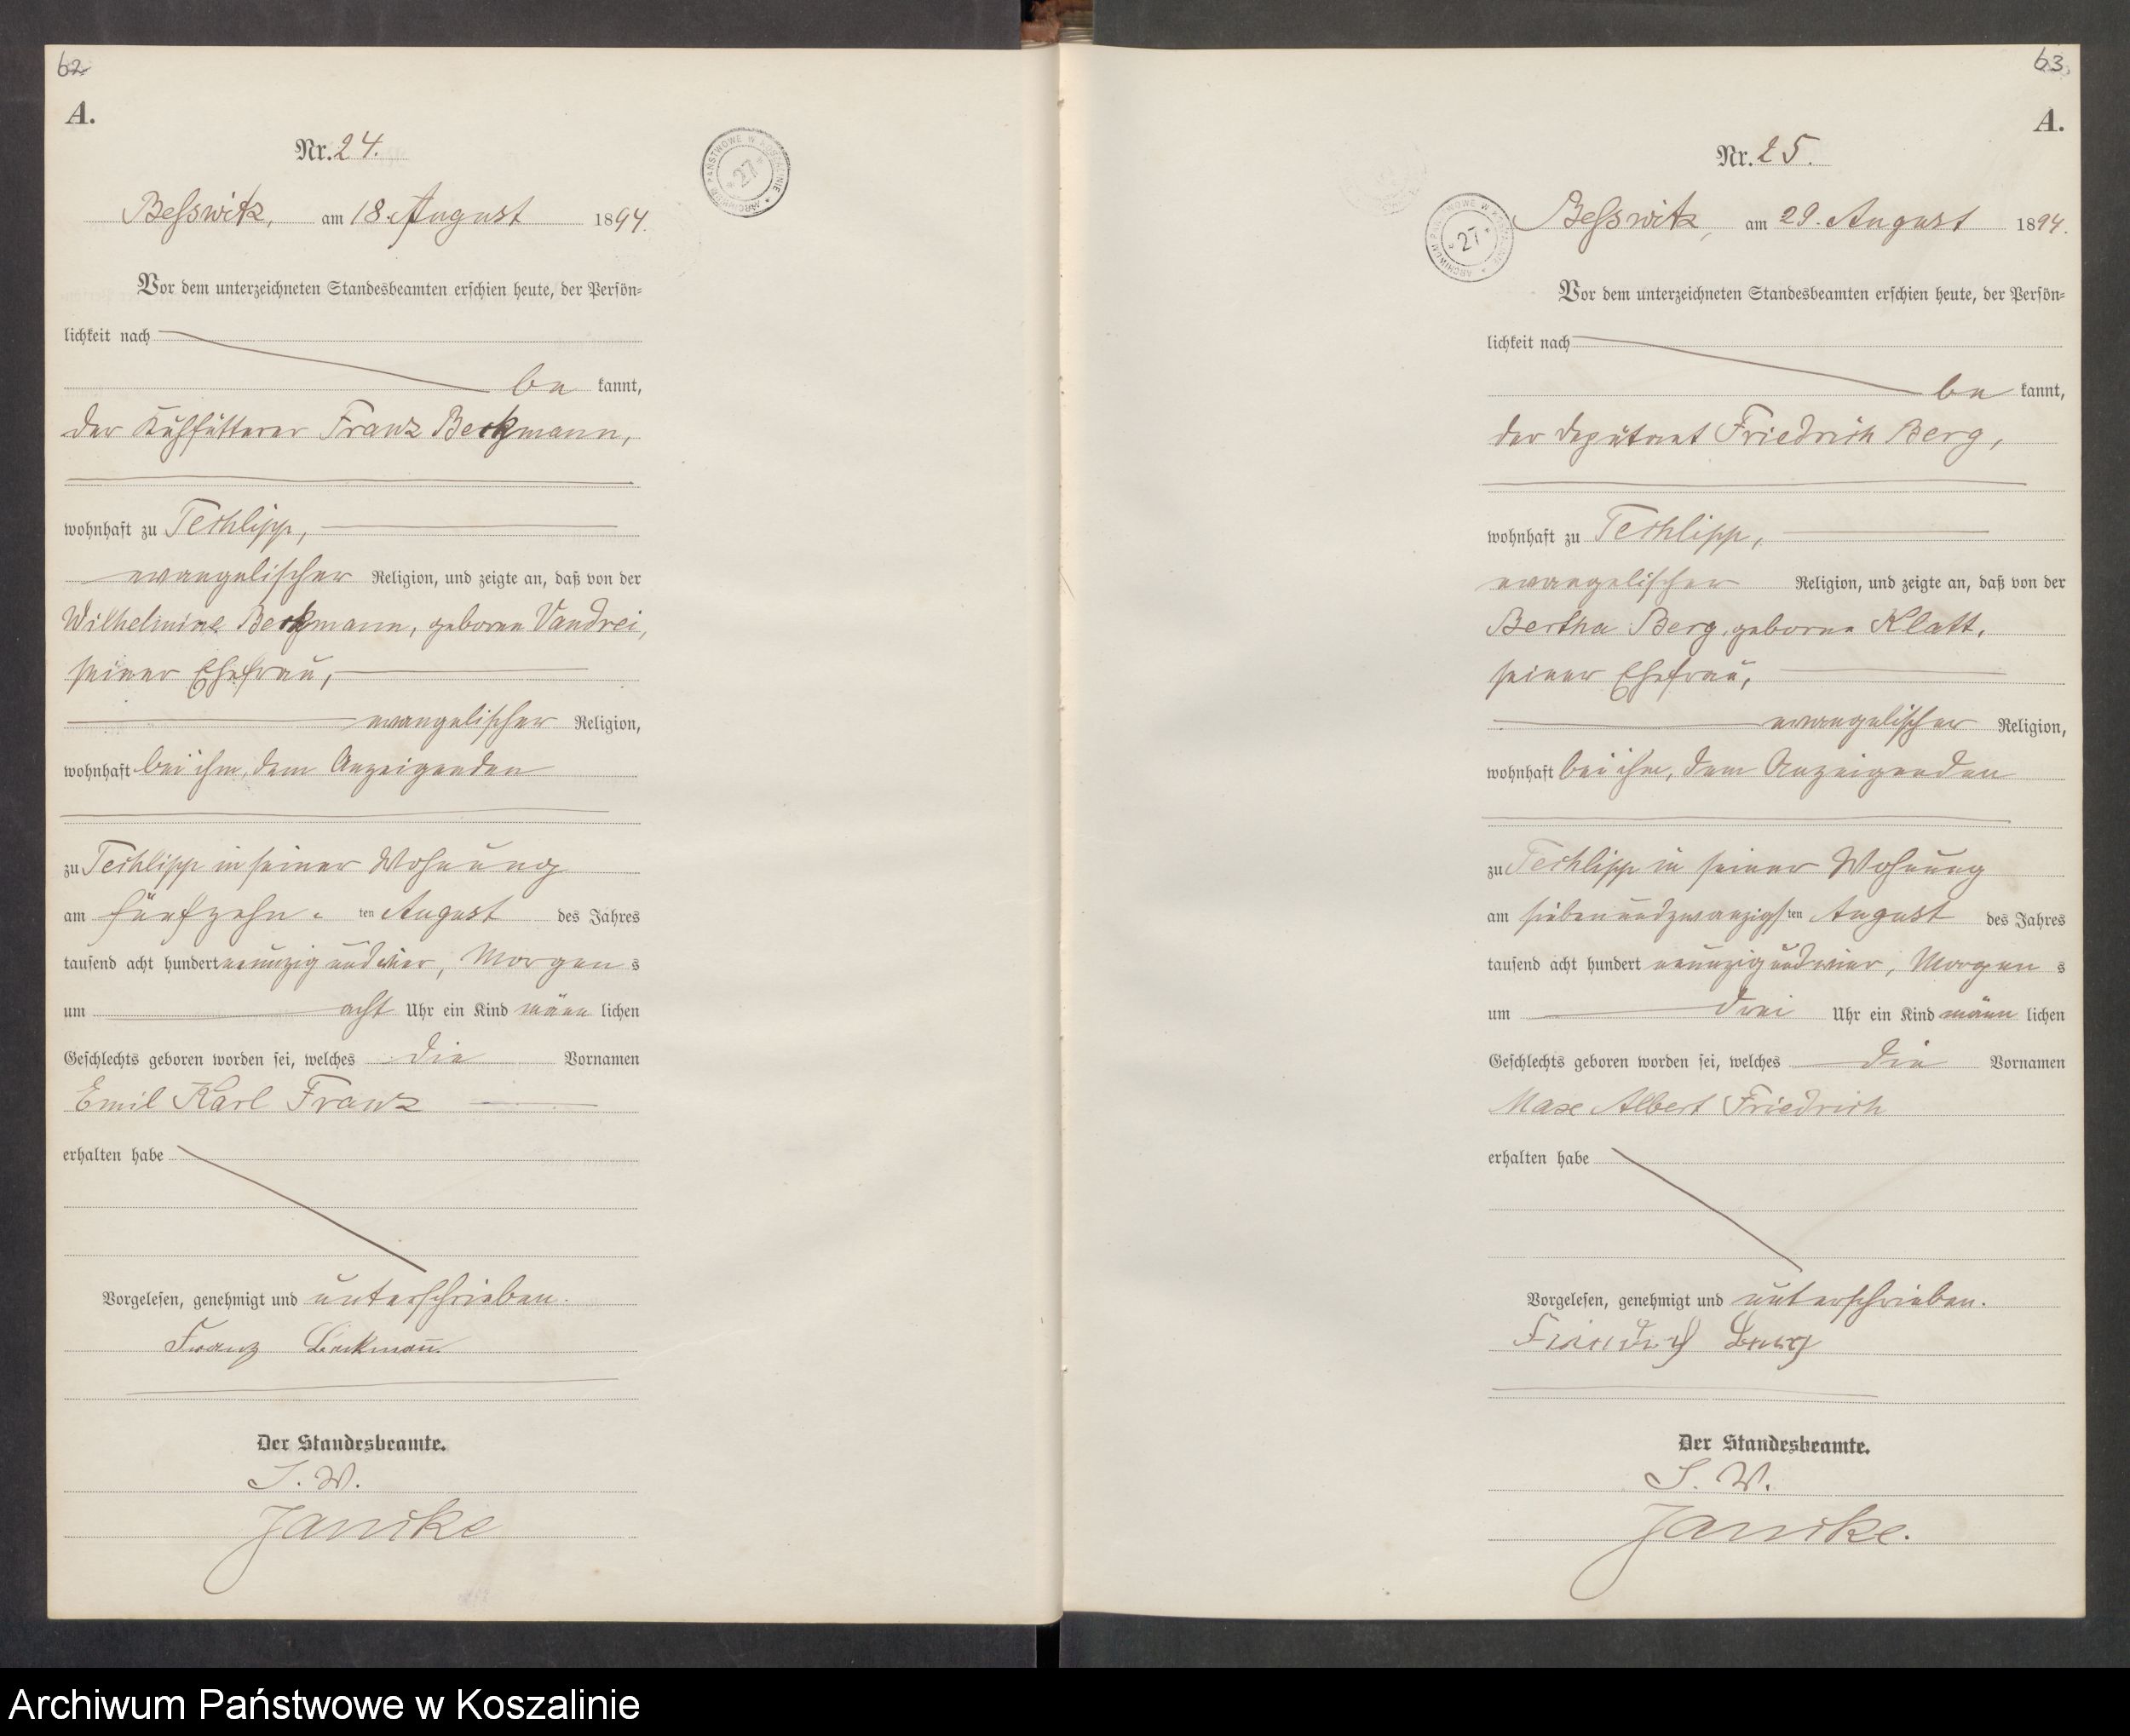 62
A.
Nr. 24.
ARCHIWUM PAŃSTWOWE W KOSZALINIE
* 27 *
Beſswitz, am 18. August 1894.
Vor dem unterzeichneten Standesbeamten erschien heute, der Persön=
lichkeit nach
be kannt,
der Kuhfütterer Franz Beckmann,
wohnhaft zu Techlipp,
evangelischer Religion, und zeigte an, daß von der
Wilhelmine Beckmann, geborne Vandrei,
seiner Ehefrau,
evangelischer Religion,
wohnhaft bei ihm, dem Anzeigenden
zu Techlipp in seiner Wohnung
am fünfzehn- ten August des Jahres
tausend acht hundert neunzig und vier, Morgen s
um acht Uhr ein Kind männ lichen
Geschlechts geboren worden sei, welches die Vornamen
Emil Karl Franz
erhalten habe
Vorgelesen, genehmigt und unterschrieben.
Franz Beckmann
Der Standesbeamte.
I. V.
Jancke
63
A.
Nr. 25.
ARCHIWUM PAŃSTWOWE W KOSZALINIE
* 27 *
Beſswitz, am 29. August 1894.
Vor dem unterzeichneten Standesbeamten erschien heute, der Persön=
lichkeit nach
be kannt,
der Deputant Friedrich Berg,
wohnhaft zu Techlipp,
evangelischer Religion, und zeigte an, daß von der
Bertha Berg, geborne Klatt,
seiner Ehefrau,
evangelischer Religion,
wohnhaft bei ihm, dem Anzeigenden
zu Techlipp in seiner Wohnung
am siebenundzwanzigs ten August des Jahres
tausend acht hundert neunzig und vier, Morgen s
um drei Uhr ein Kind männ lichen
Geschlechts geboren worden sei, welches die Vornamen
Max Albert Friedrich
erhalten habe
Vorgelesen, genehmigt und unterschrieben.
Friedrich Berg
Der Standesbeamte.
I. V.
Jancke.
Archiwum Państwowe w Koszalinie